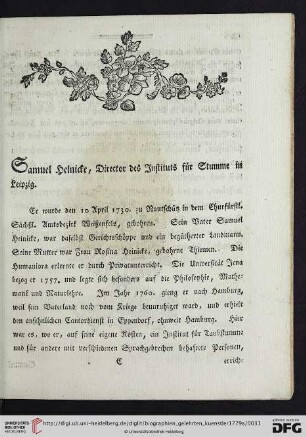 Samuel Heinicke, Director des Instituts für Stumme in
Leipzig.
Er wurde den 10 April 1730. zu Nautschütz in dem Churfürstl.
Sächs. Amtsbezirk Weissenfels, gebohren. Sein Vater Samuel
Heinicke, war daselbst Gerichtsschöppe und ein begüterter Landmann.
Seine Mutter war Frau Rosina Heinicke, gebohrne Thiemen. Die
Humaniora erlernte er durch Privatunterricht. Die Universität Jena
bezog er 1757, und legte sich besonders auf die Philosophie, Mathe-
matik und Naturlehre. Im Jahr 1760. gieng er nach Hamburg,
weil sein Vaterland noch vom Kriege beunruhiget ward, und erhielt
den ansehnlichen Cantordienst in Eppendorf, ohnweit Hamburg. Hier
war es, wo er, auf seine eigene Kosten, ein Institut für Taubstumme
und für andere mit verschiedenen Sprachgebrechen behaftete Personen,
C
errich-
UNIVERSITÄTS-
BIBLIOTHEK
HEIDELBERG
http://digi.ub.uni-heidelberg.de/diglit/biographien_gelehrten_kuenstler1779s/0031
© Universitätsbibliothek Heidelberg
gefördert durch die
DFG